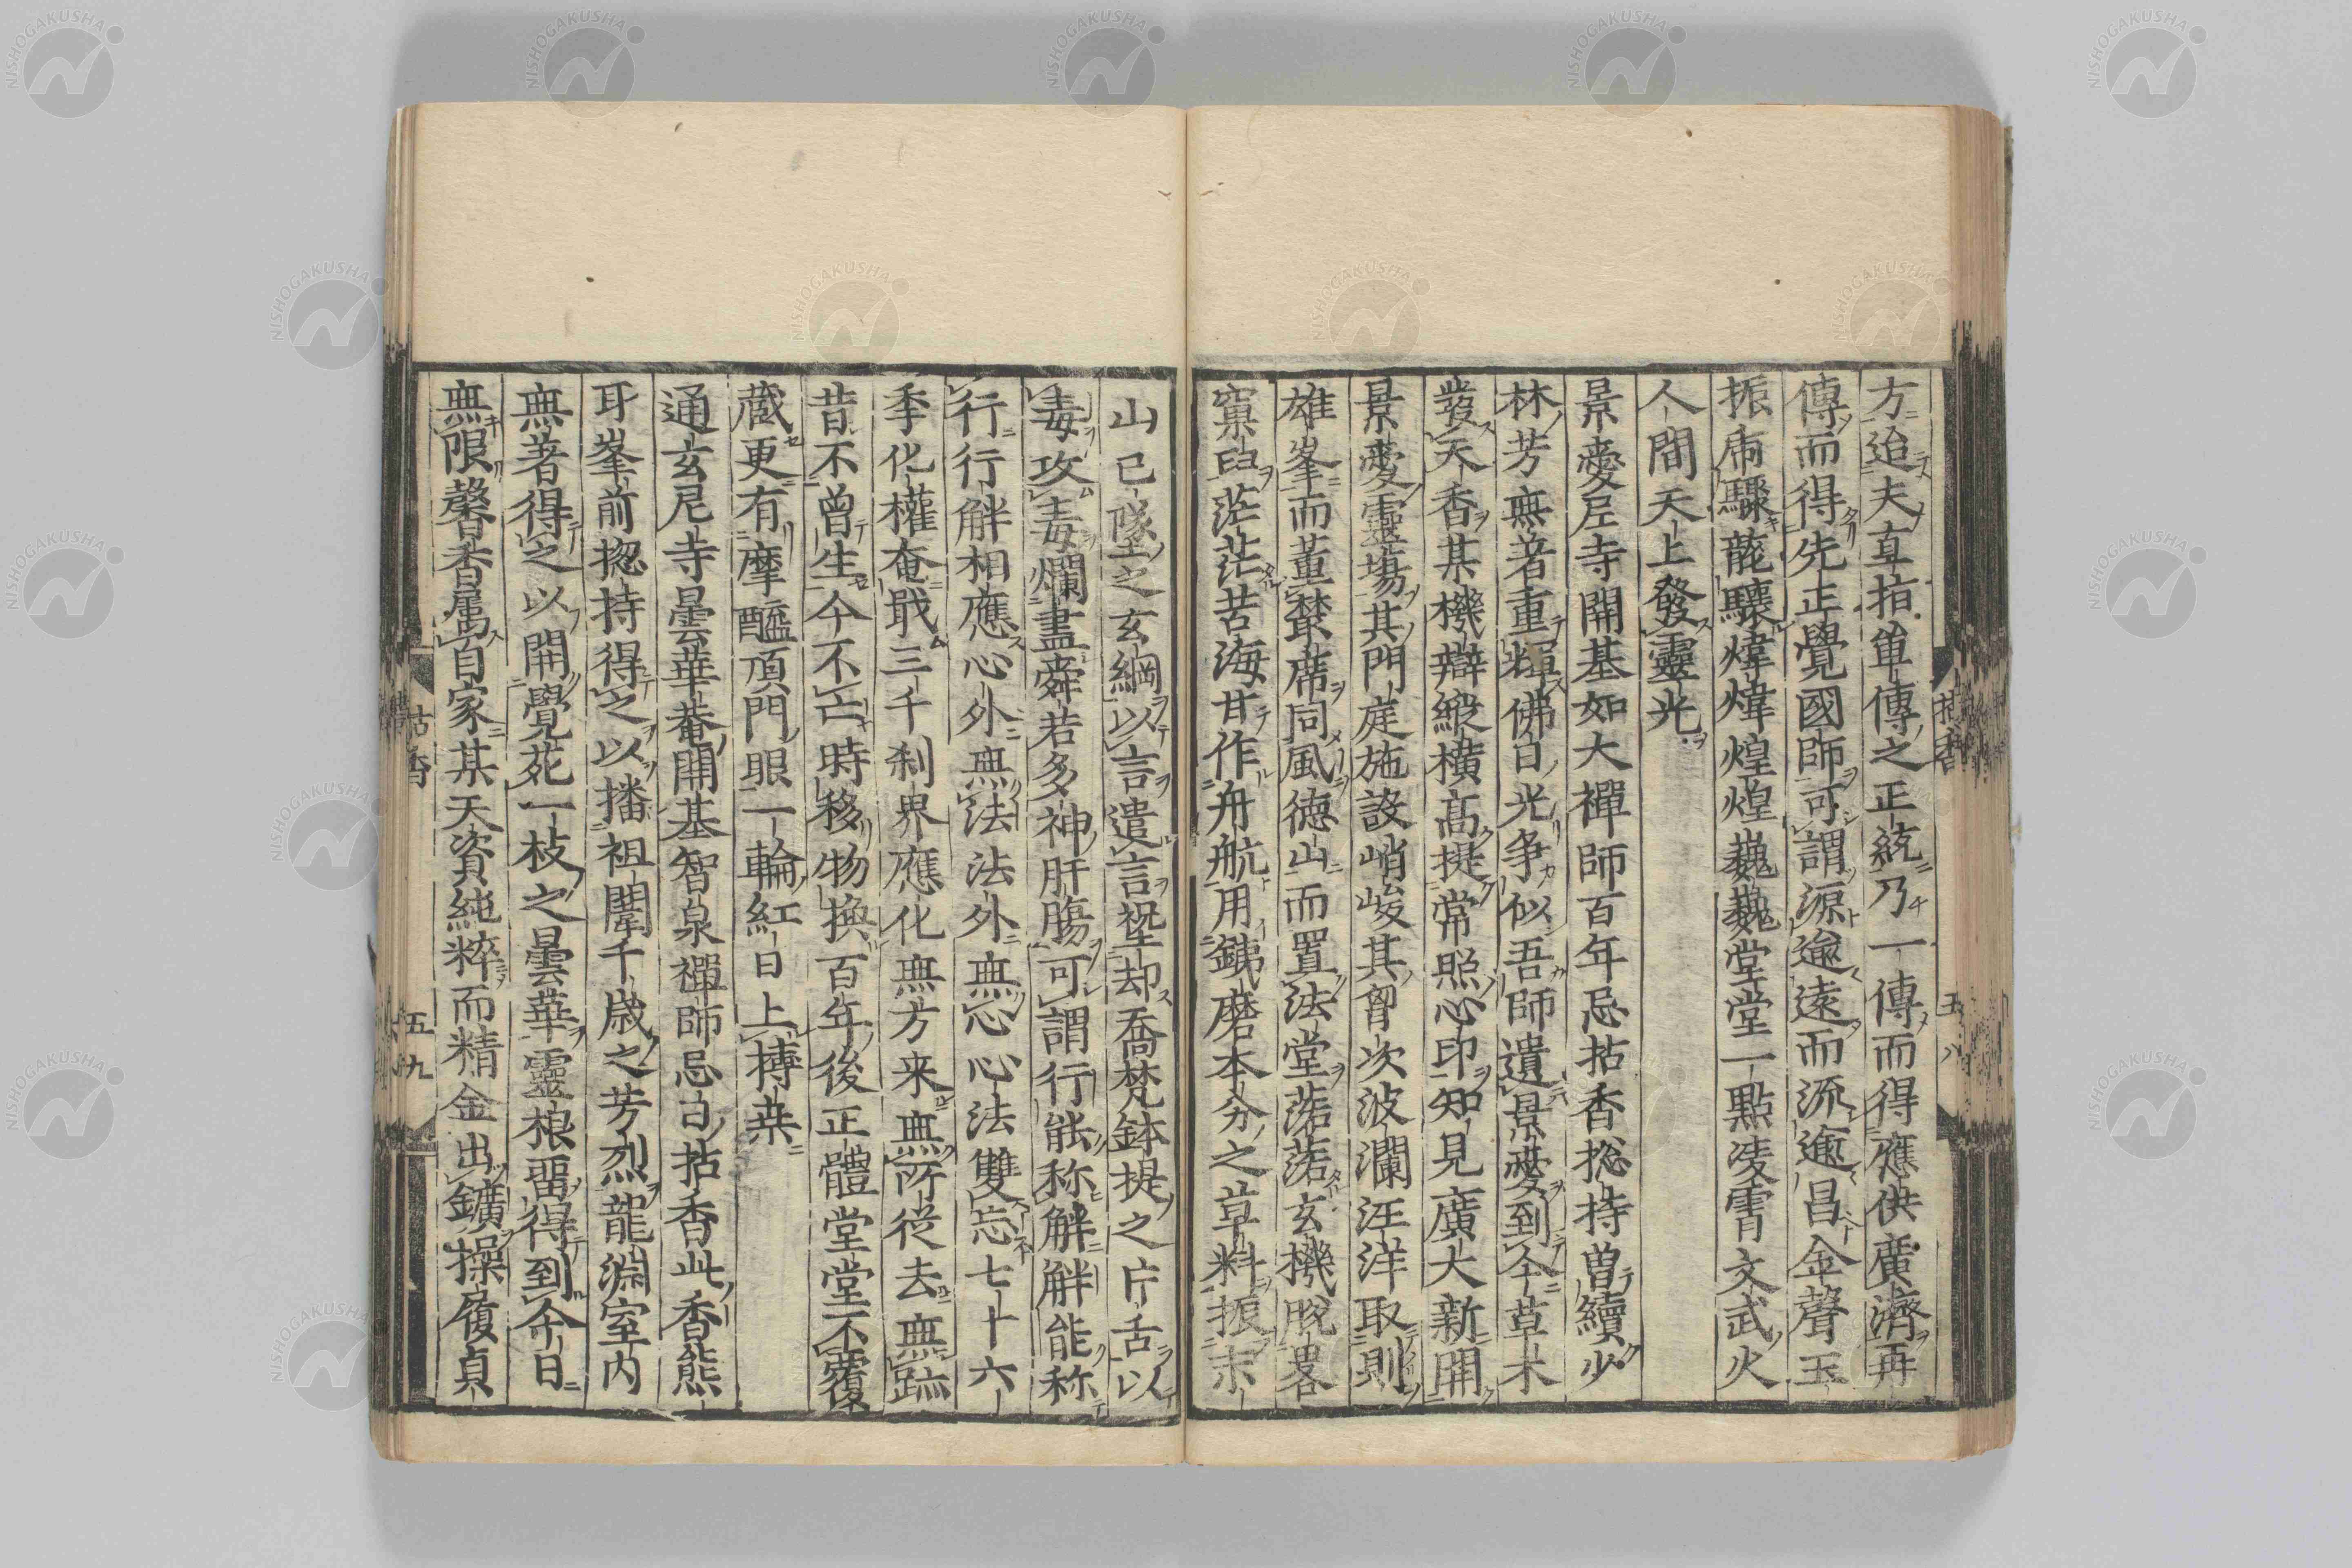 方迨夫直指單傳之正統乃一傳而得應供廣濟再
傳而得先正覺國師可謂源遠而流逾昌金聲玉
振虎驟龍驤煒煒煌煌巍巍堂堂一點凌霄文武火
人間天上發靈光
景愛尼寺開基如大禪師百年忌拈香捴持曽續少
林芳無著重輝佛日光争似吾師遺景愛到今草木
發天香某機辯縱横髙提常照心印知見廣大新開
景愛靈場其門庭施設峭峻其胷次波瀾汪洋取則
雄峯而董禁席同風德山而置法堂落落玄機脱畧
窠臼茫茫苦海甘作舟航用錢磨本分之草料振宗
山已墜之玄綱以言遣言望却喬梵鉢提之片舌以
毒攻毒爛盡舜若多神肝膓可謂行能称解解能称
行行解相應心外無法法外無心心法雙忘七十六
季化權奄戢三千刹界應化無方来無所從去無跡
昔不曾生今不亡時移物換百年後正體堂堂不覆
藏更有摩醯頂門眼一輪紅日上搏桒
通玄尼寺曇華菴開基智泉禪師忌日拈香此香熊
耳峯前捴持得之以播祖闈千歳之芳烈龍淵室内
無著得之以開覺苑一枝之曇華靈根畱得到今日
無限馨香属自家某天資純粹而精金出鑛操履貞
拈香
五八
拈香
五九
NISHOGAKUSHA